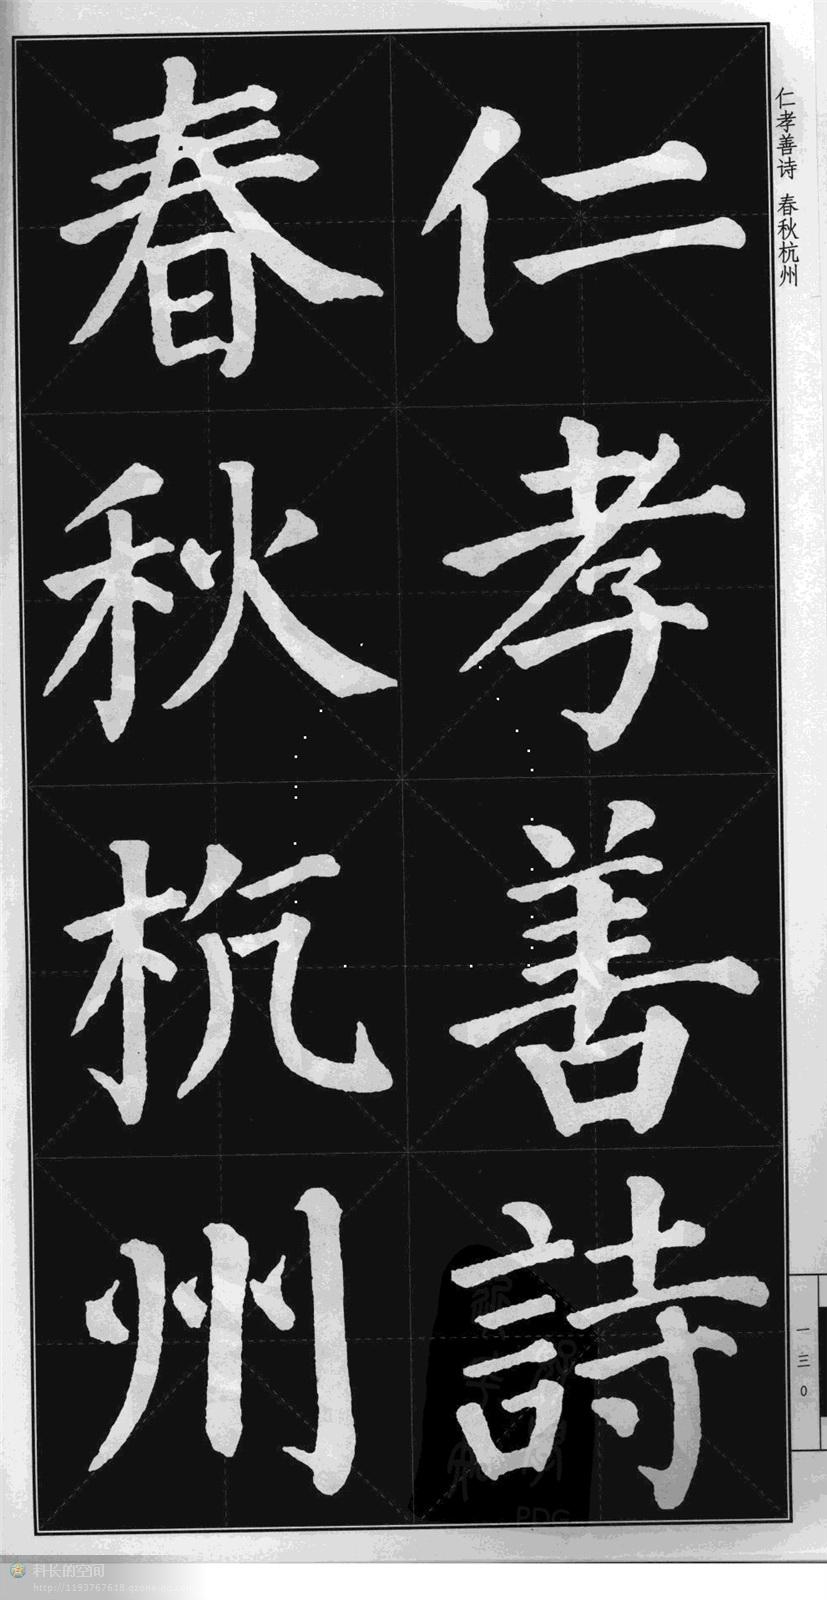 仁孝善詩
春秋杭州
仁孝善诗 春秋杭州
一三〇
PDG
科长的空间
http://1193767618.qzone.qq.com